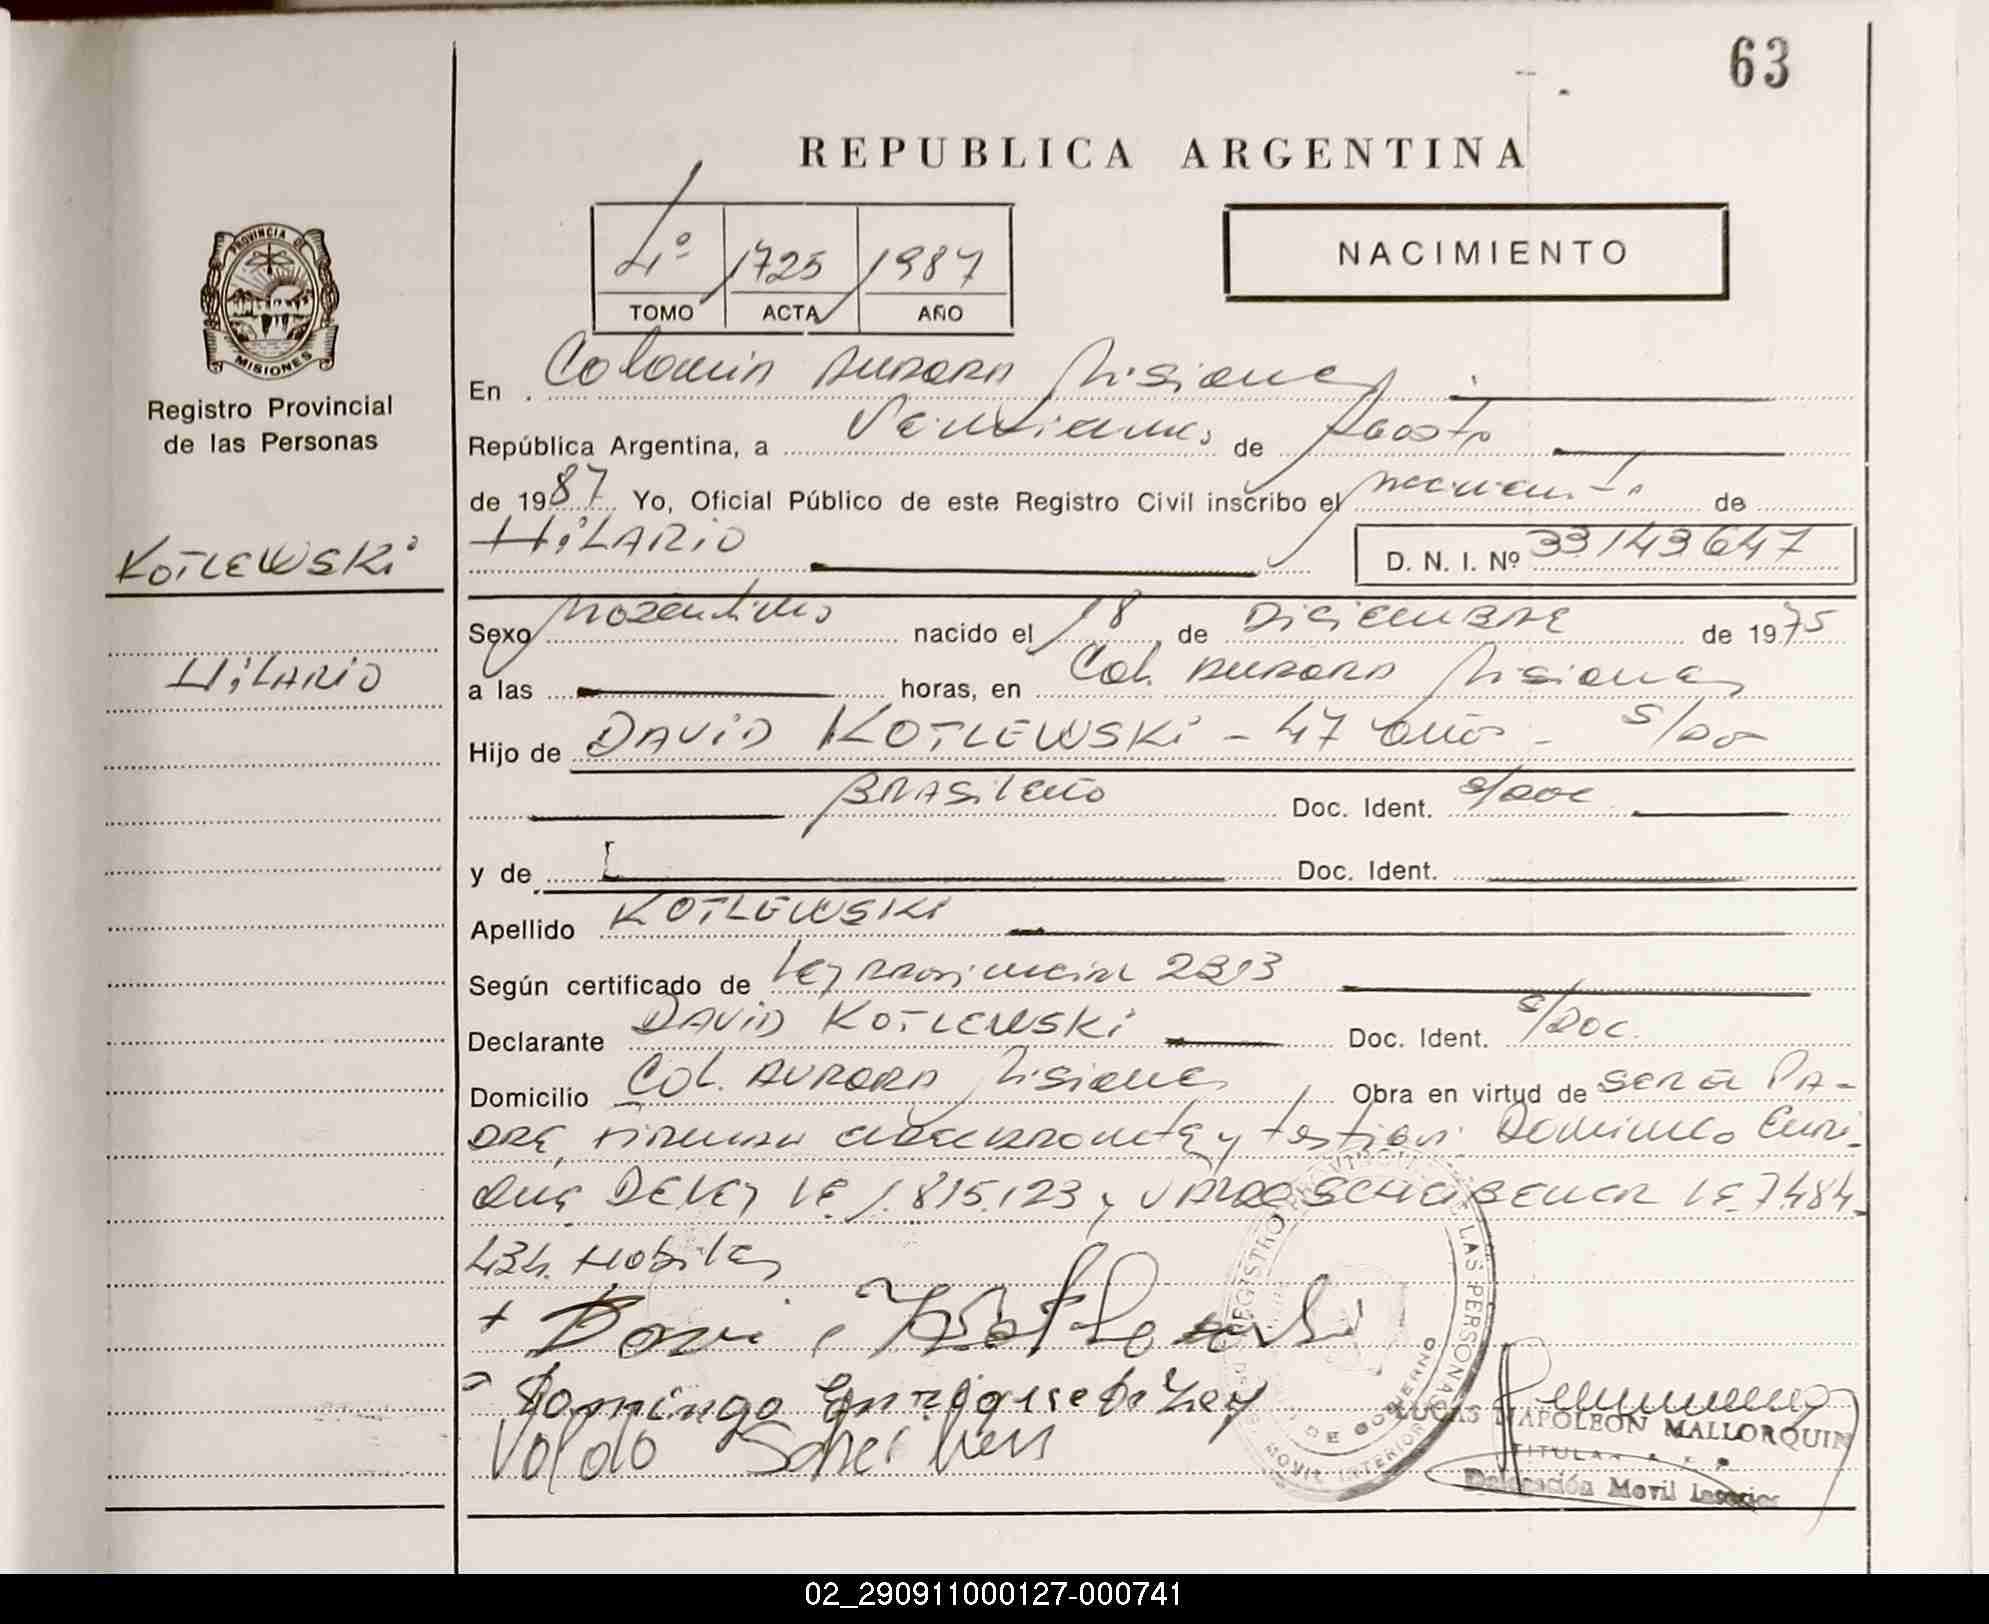 63
REPUBLICA ARGENTINA
4º 1725 1987
TOMO ACTA AÑO
NACIMIENTO
PROVINCIA DE
MISIONES
Registro Provincial
de las Personas
KOTLEWSKi
HiLARiO
En Colonia AURORA Misiones
República Argentina, a Veinticinco de Agosto
de 1987 Yo, Oficial Público de este Registro Civil inscribo el nacimiento de
HiLARiO D. N. I. Nº 33143647
Sexo Masculino nacido el 18 de DiCiEMBRE de 1975
a las horas, en Col. AURORA Misiones
Hijo de DAViD KOTLEWSKi - 47 años -
BRASiLEñO Doc. Ident. s/doc
y de Doc. Ident.
Apellido KOTLEWSKi
Según certificado de Ley Provincial
Declarante DAViD KOTLEWSKi Doc. Ident. s/Doc.
Domicilio Col. AURORA Misiones Obra en virtud de SER EL PA-
DRE, FIRMAN declarante y testigos: Domingo Enri-
que DELEY LE 1.815.123 y LE 7.484.
434. Habiles
Domingo Enrrique
Valdo
REGISTRO PROVINCIAL DE LAS PERSONAS
DE GOBIERNO
MOVIL INTERIOR
LUCAS NAPOLEON MALLORQUIN
TITULAR
Delegación Movil Interior
02_290911000127-000741